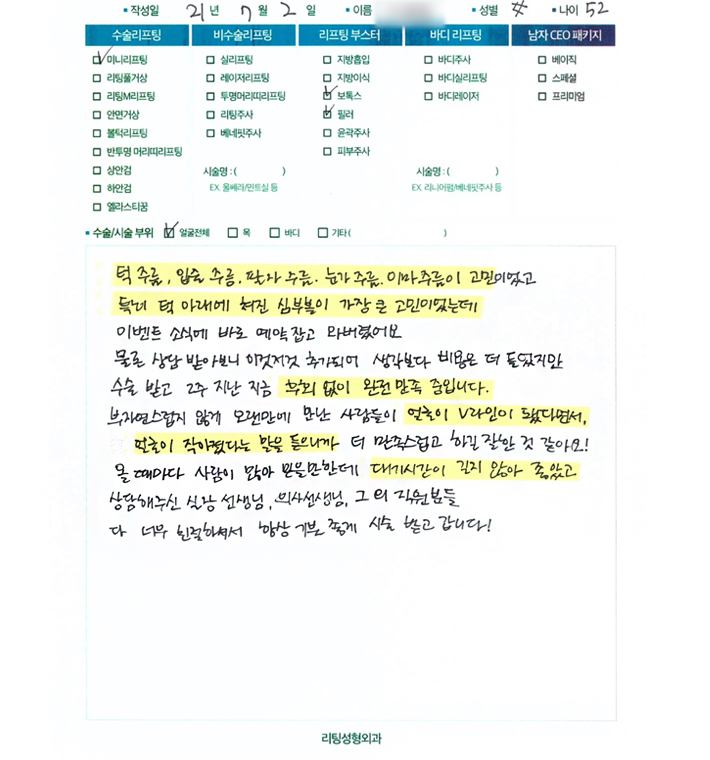 작성일 21년 7월 2일 이름 성별 나이 52
수술리프팅 비수술리프팅 리프팅 부스터 바디 리프팅 남자 CEO 패키지
미니리프팅 실리프팅 지방흡입 바디주사 베이직
리팅풀거상 레이저리프팅 지방이식 바디실리프팅 스페셜
리팅M리프팅 투명머리띠리프팅 보톡스 바디레이저 프리미엄
안면거상 리팅주사 필러
볼턱리프팅 베네핏주사 윤곽주사
반투명 머리띠리프팅 피부주사
상안검 시술명 : ( ) 시술명 : ( )
하안검 EX. 울쎄라/민트실 등 EX. 리니어펌/베네핏주사 등
엘라스티꿈
수술/시술 부위 얼굴전체 목 바디 기타 ( )
턱 주름, 입술 주름, 팔자 주름, 눈가 주름, 이마주름이 고민이었고
특히 턱 아래에 쳐진 심부볼이 가장 큰 고민이었는데
이벤트 소식에 바로 예약잡고 와버렸어요
물론 상담 받아보니 이것저것 추가되어 생각보다 비용은 더 들었지만
수술 받고 2주 지난 지금 후회 없이 완전만족 중입니다.
부자연스럽지 않게 오랜만에 만난 사람들이 얼굴이 V라인이 됐다면서,
얼굴이 작아졌다는 말을 들으니까 더 만족스럽고 하길 잘한 것 같아요!
올 때마다 사람이 많아 붐을만한데 대기시간이 길지 않아 좋았고
상담해주신 실장 선생님, 의사선생님, 그 외 직원분들
다 너무 친절하셔서 항상 기분 좋게 시술 받고 갑니다!
리팅성형외과